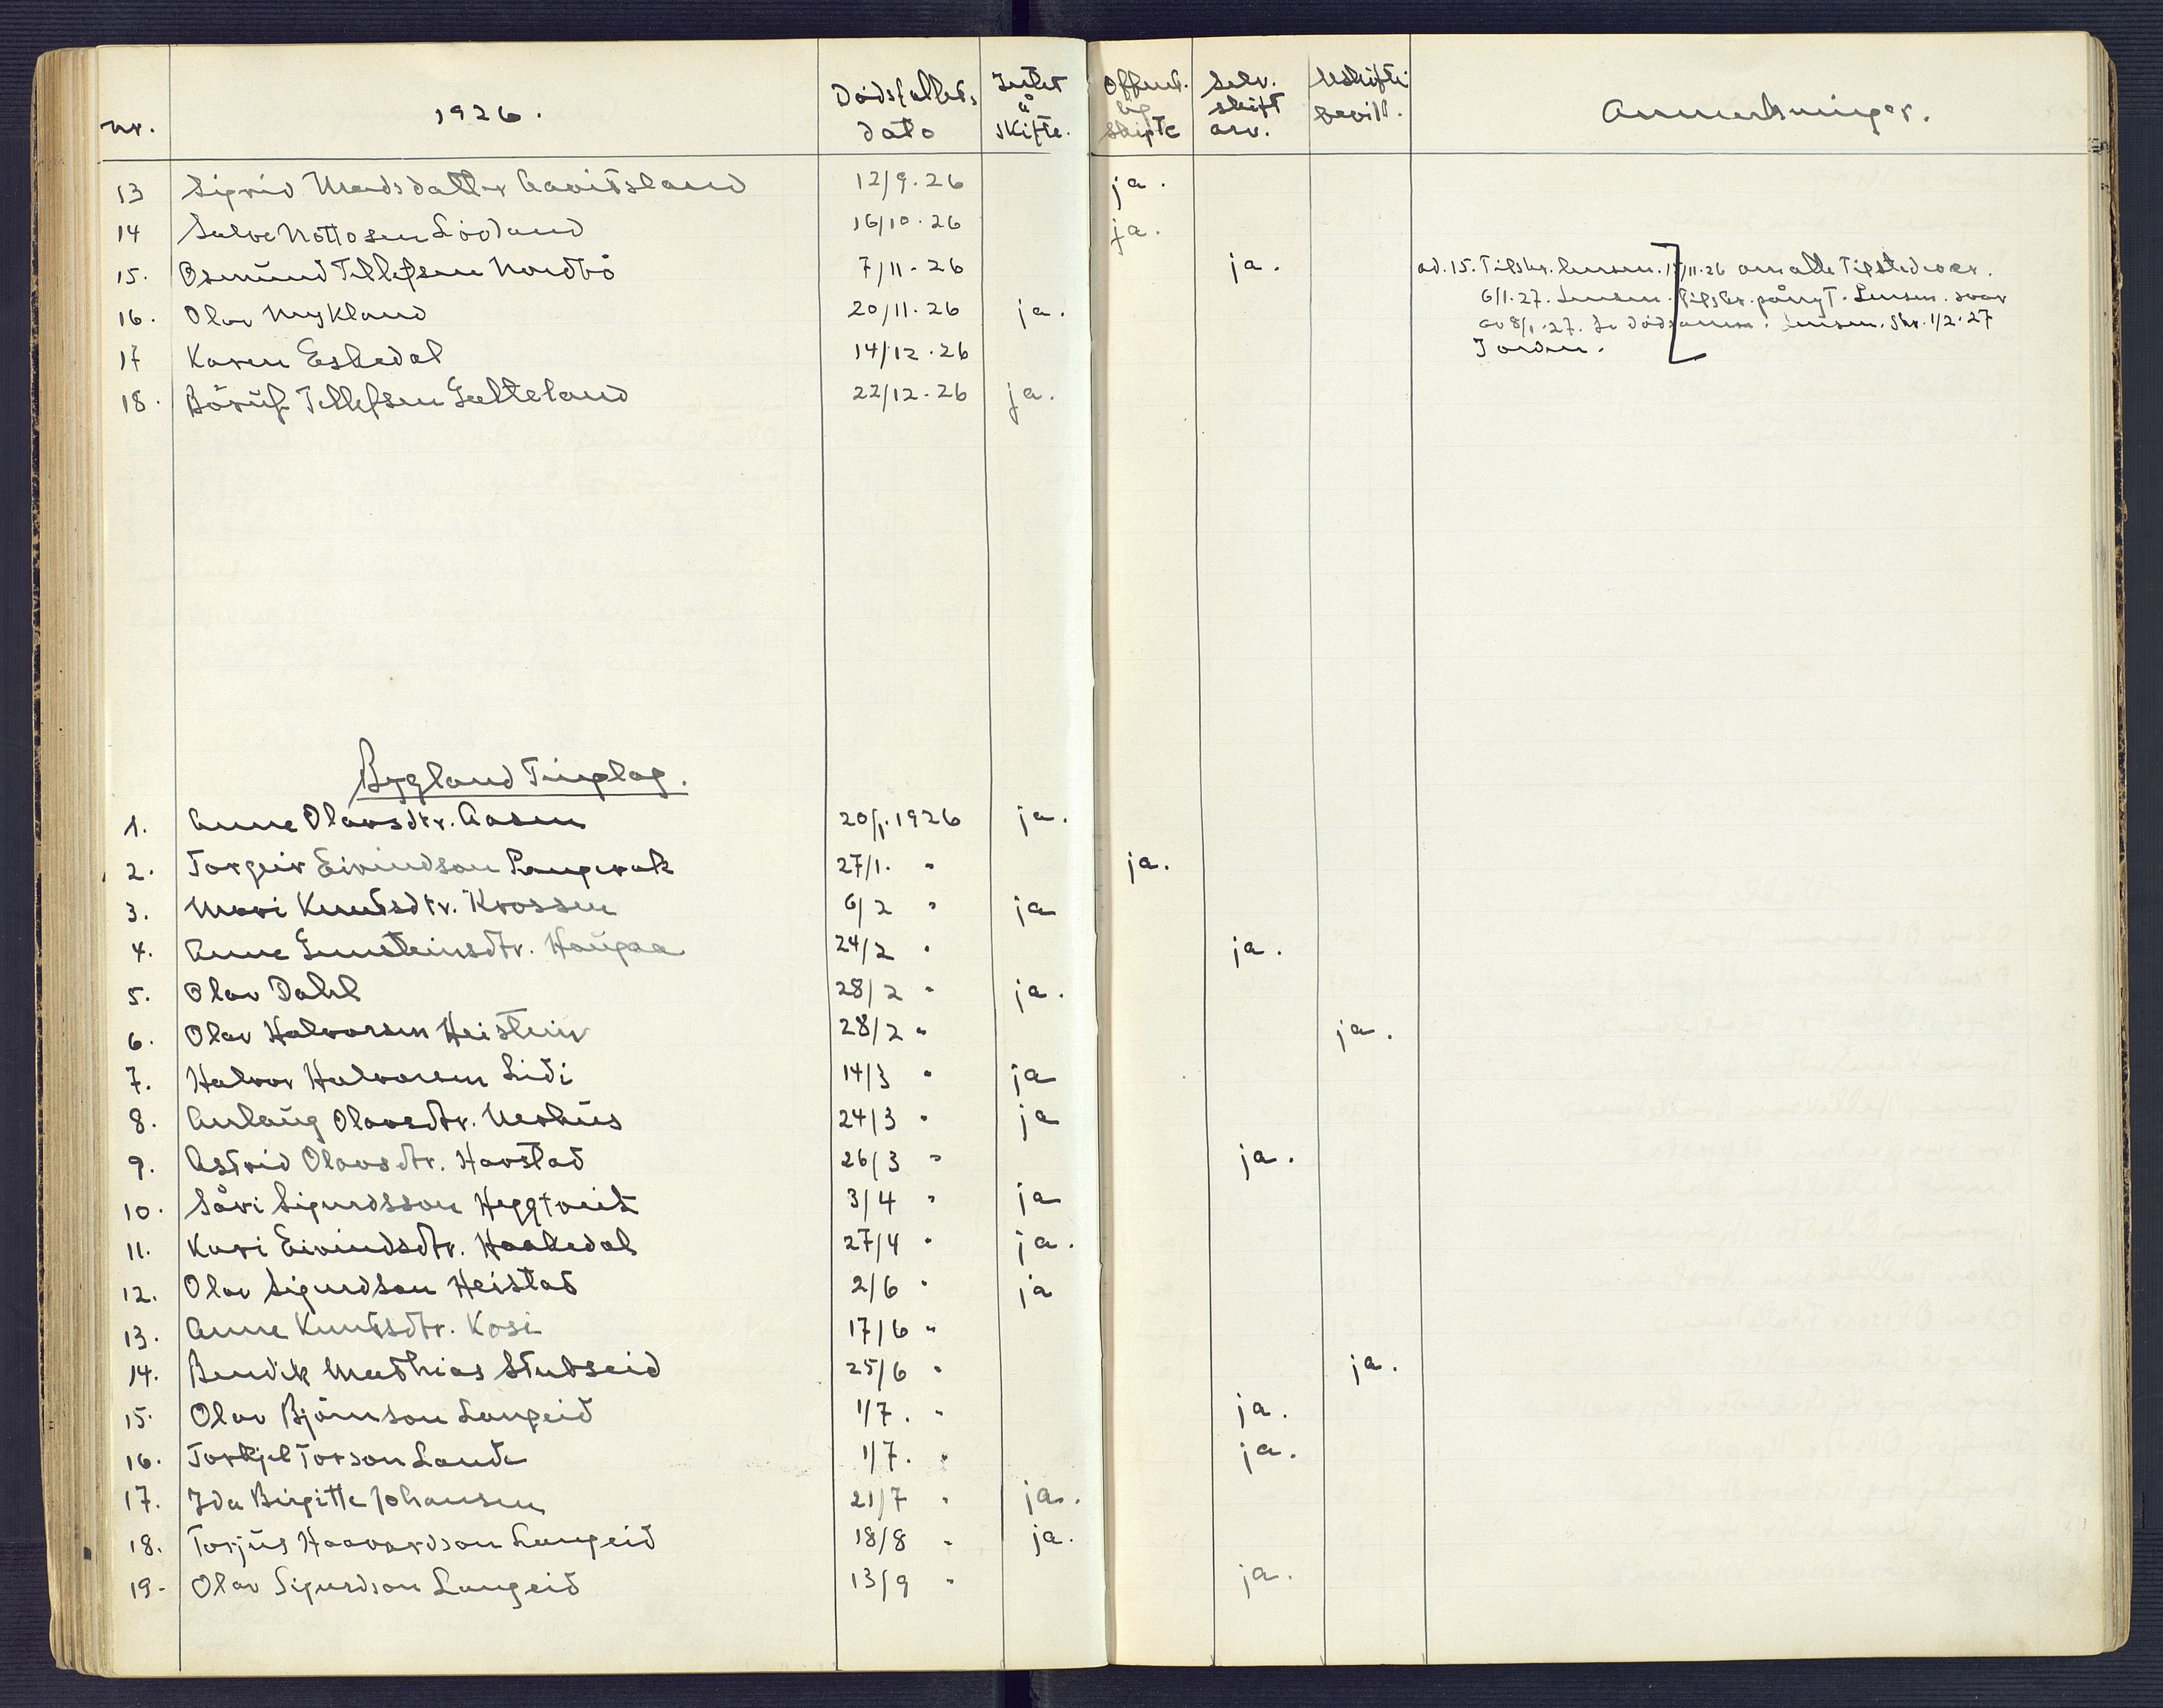 nr. 1926. Dödsfallets dato Intet å skifte. Offent. lig skifte Selv. skift arv. Uskifte bevill. Anmerkninger.
13 Sigrid Madsdatter Aavitsland 12/9.26 ja.
14 Salve Nottosen Lövland 16/10.26 ja.
15. Osmund Tellefsen Nordbö 7/11.26 ja. ad. 15. Tilskr. lensm. 11.26 om alle tilstedevær.
6/1.27. Lensm. tilskr. på nyt. Lensm. svar
16. Olav Mykland 20/11.26 ja.
av 8/1.27. Se dödsanm. lensm. skr. 1/2.27
17 Karen Eskedal 14/12.26
18. Böruf Tellefsen Galteland 22/12.26 ja.
Bygland Tinglag.
1. Anne Olavsdtr. Aasen 20/1.1926 ja.
2. Torgeir Eivindson Langerak 27/1. " ja.
3. Mari Knutsdtr. Krossen 6/2 " ja
4. Anne Gunsteinsdtr. Haugaa 24/2 " ja.
5. Olav Dahl 28/2 " ja.
6. Olav Halvorsen Heistein 28/2 " ja.
7. Halvor Halvorsen Lidi 14/3 " ja
8. Anlaug Olavsdtr. Neshus 24/3 " ja
9. Astrid Olavsdtr. Harstad 26/3 " ja.
10. Såvi Sigurdsson Heggtveit 3/4 " ja
11. Kari Eivindsdtr. Haakedal 27/4 " ja.
12. Olav Sigurdson Heistad 2/6 " ja
13. Anne Knutsdtr. Kosi 17/6 "
14. Bendik Mathias Stutseid 25/6 " ja.
15. Olav Björnson Langeid 1/7. " ja.
16. Torkjel Torson Lande 1/7. " ja.
17. Ida Birgitte Johansen 21/7 " ja.
18. Torjus Haavardson Langeid 18/8 " ja.
19. Olav Sigurdson Langeid 13/9 " ja.